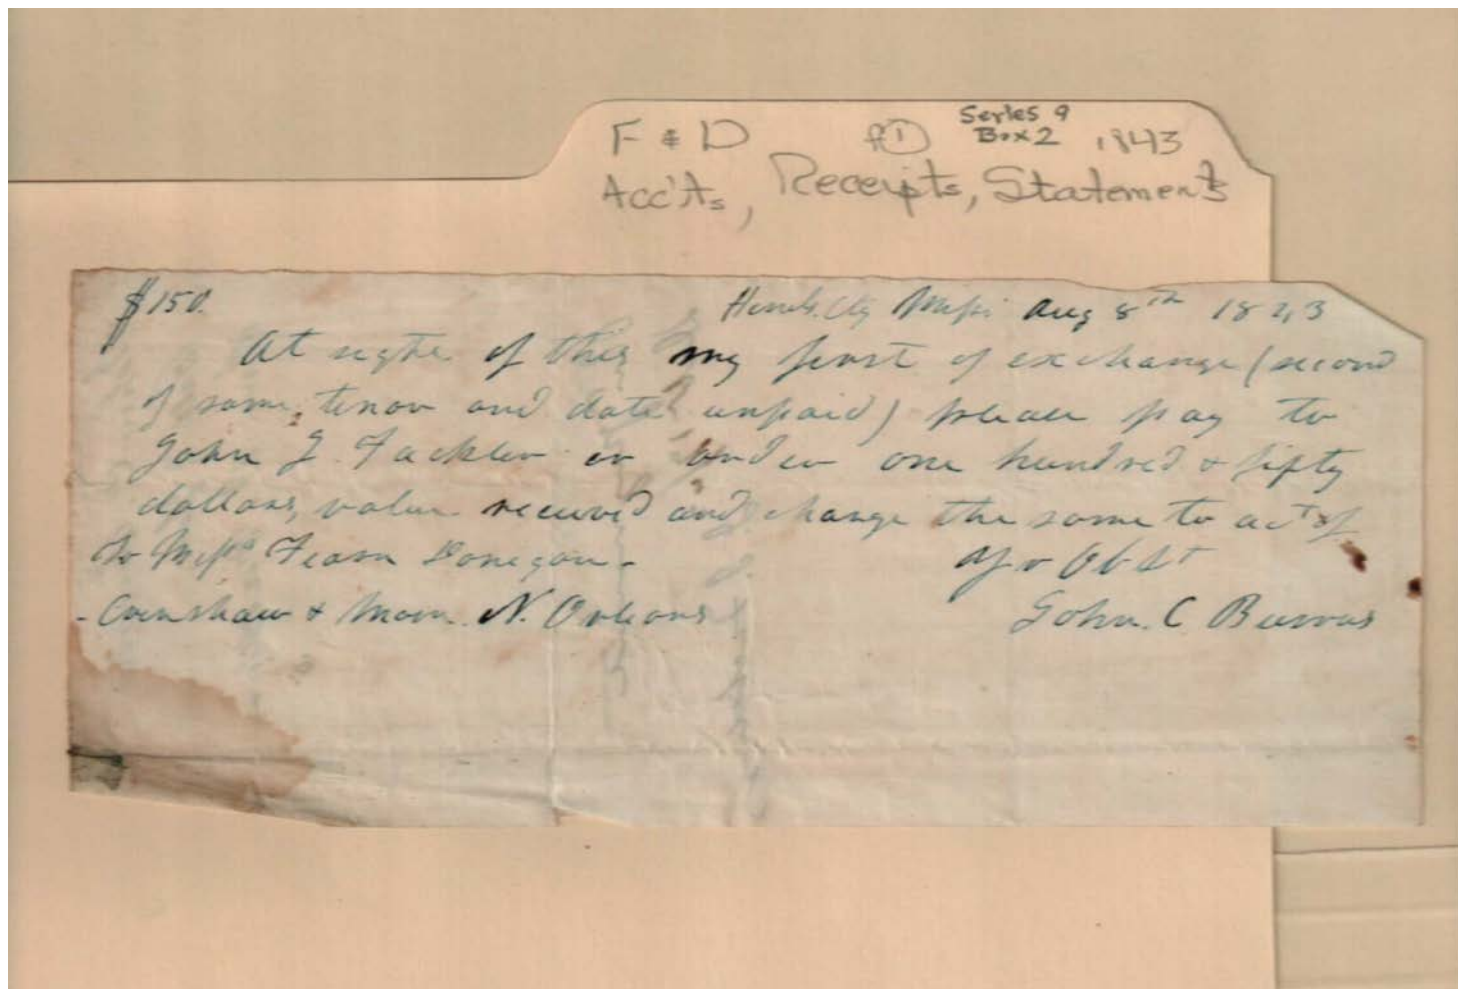 F & D ① Series 9
Box 2 1843
Acc'ts, Receipts, Statements
$150. Hinds. Cty Missi Aug 8th 1843
At sight of this my first of exchange (second
of same, tenor and date unpaid) please pay to
John J. Fackler or order one hundred & fifty
dollars, value received and charge the same to act of
To Messrs Fearn Donegan - yr Obst
Crenshaw & N. Orleans John. C Burrus